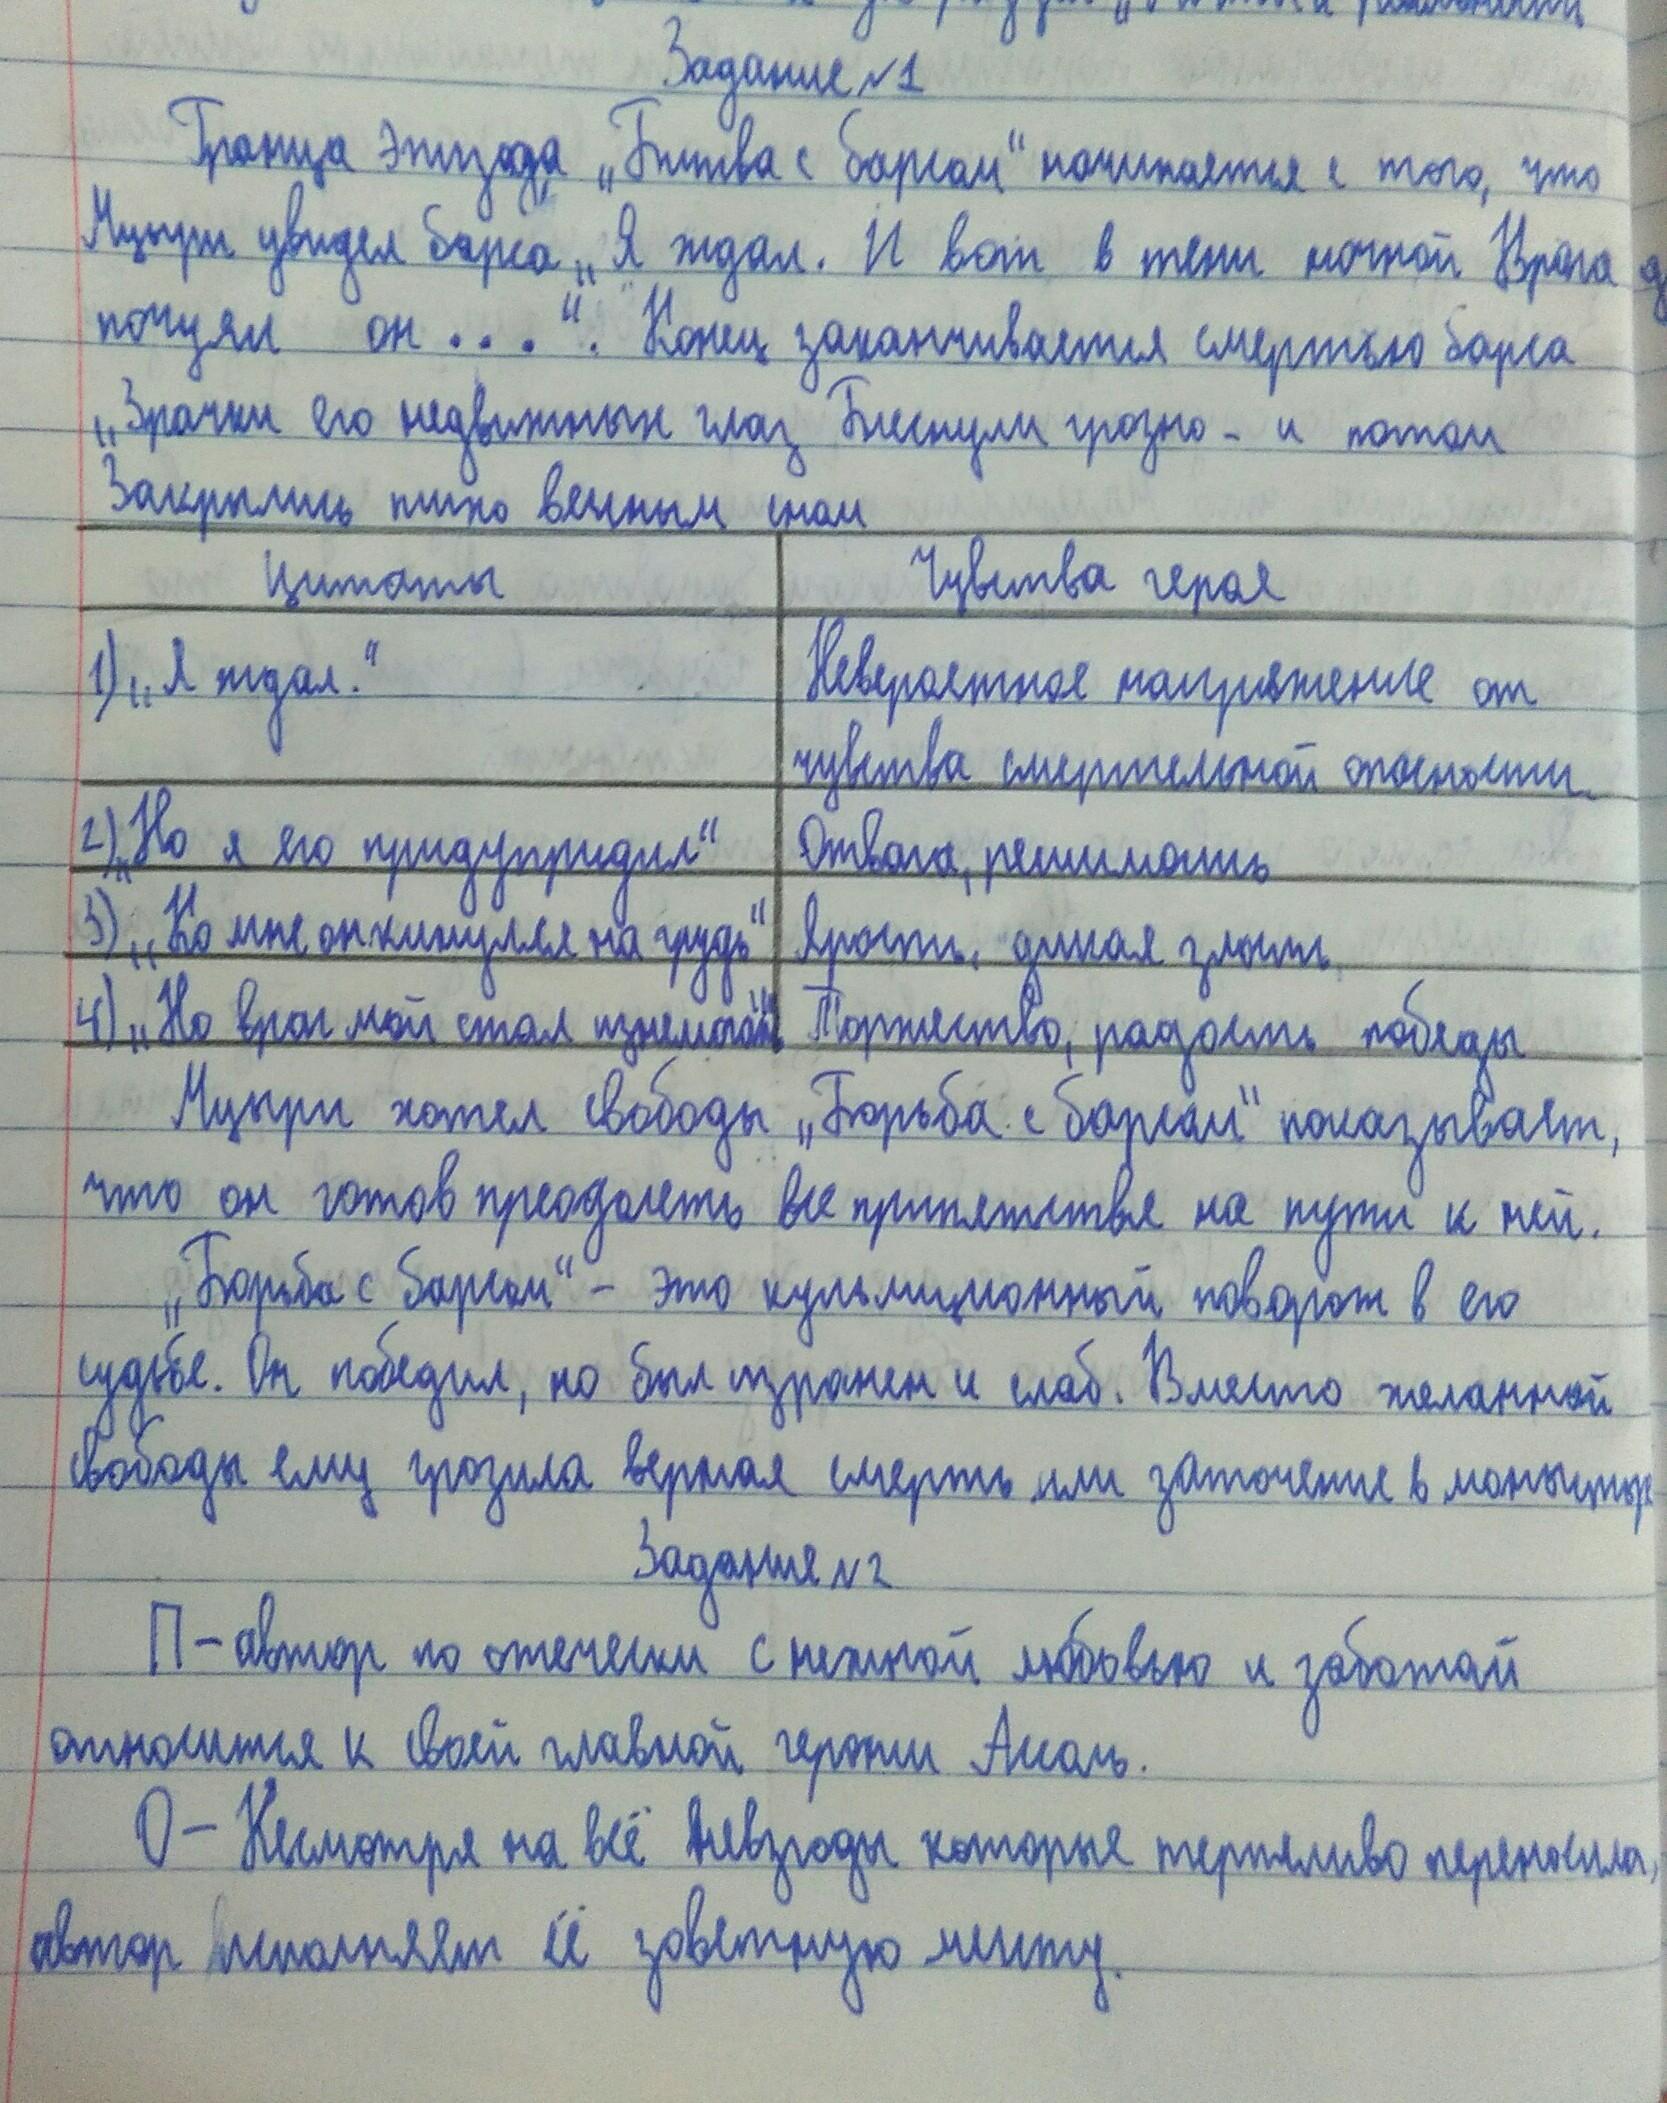 Задание №1
Граница эпизода „Битва с барсом“ начинается с того, что
Мцыри увидел барса „Я ждал. И вот в тени ночной Врага
почуял он . . .“. Конец заканчивается смертью барса
„Зрачки его недвижных глаз Блеснули грозно - и потом
Закрылись тихо вечным сном
Цитаты Чувства героя
1) „Я ждал.“ Невероятное напряжение от
чувства смертельной опасности.
2) „Но я его придупридил“ Отвага, решимость
3) „Ко мне он кинулся на грудь“ Ярость, дикая злость
4) „Но враг мой стал изнемогать“ Торжество, радость победы
Мцыри хотел свободы „Борьба с барсом“ показывает,
что он готов преодолеть все припятствя на пути к ней.
„Борьба с барсом“ - это кульмиционный поворот в его
судьбе. Он победил, но был изранен и слаб. Вместо желанной
свободы ему грозила верная смерть или заточение в
Задание №2
П - автор по отечески с нежной любовью и заботой
относится к своей главной героини Ассоль.
О - Несмотря на всё невзгоды которые терпеливо переносила,
автор исполняет её заветную мечту.